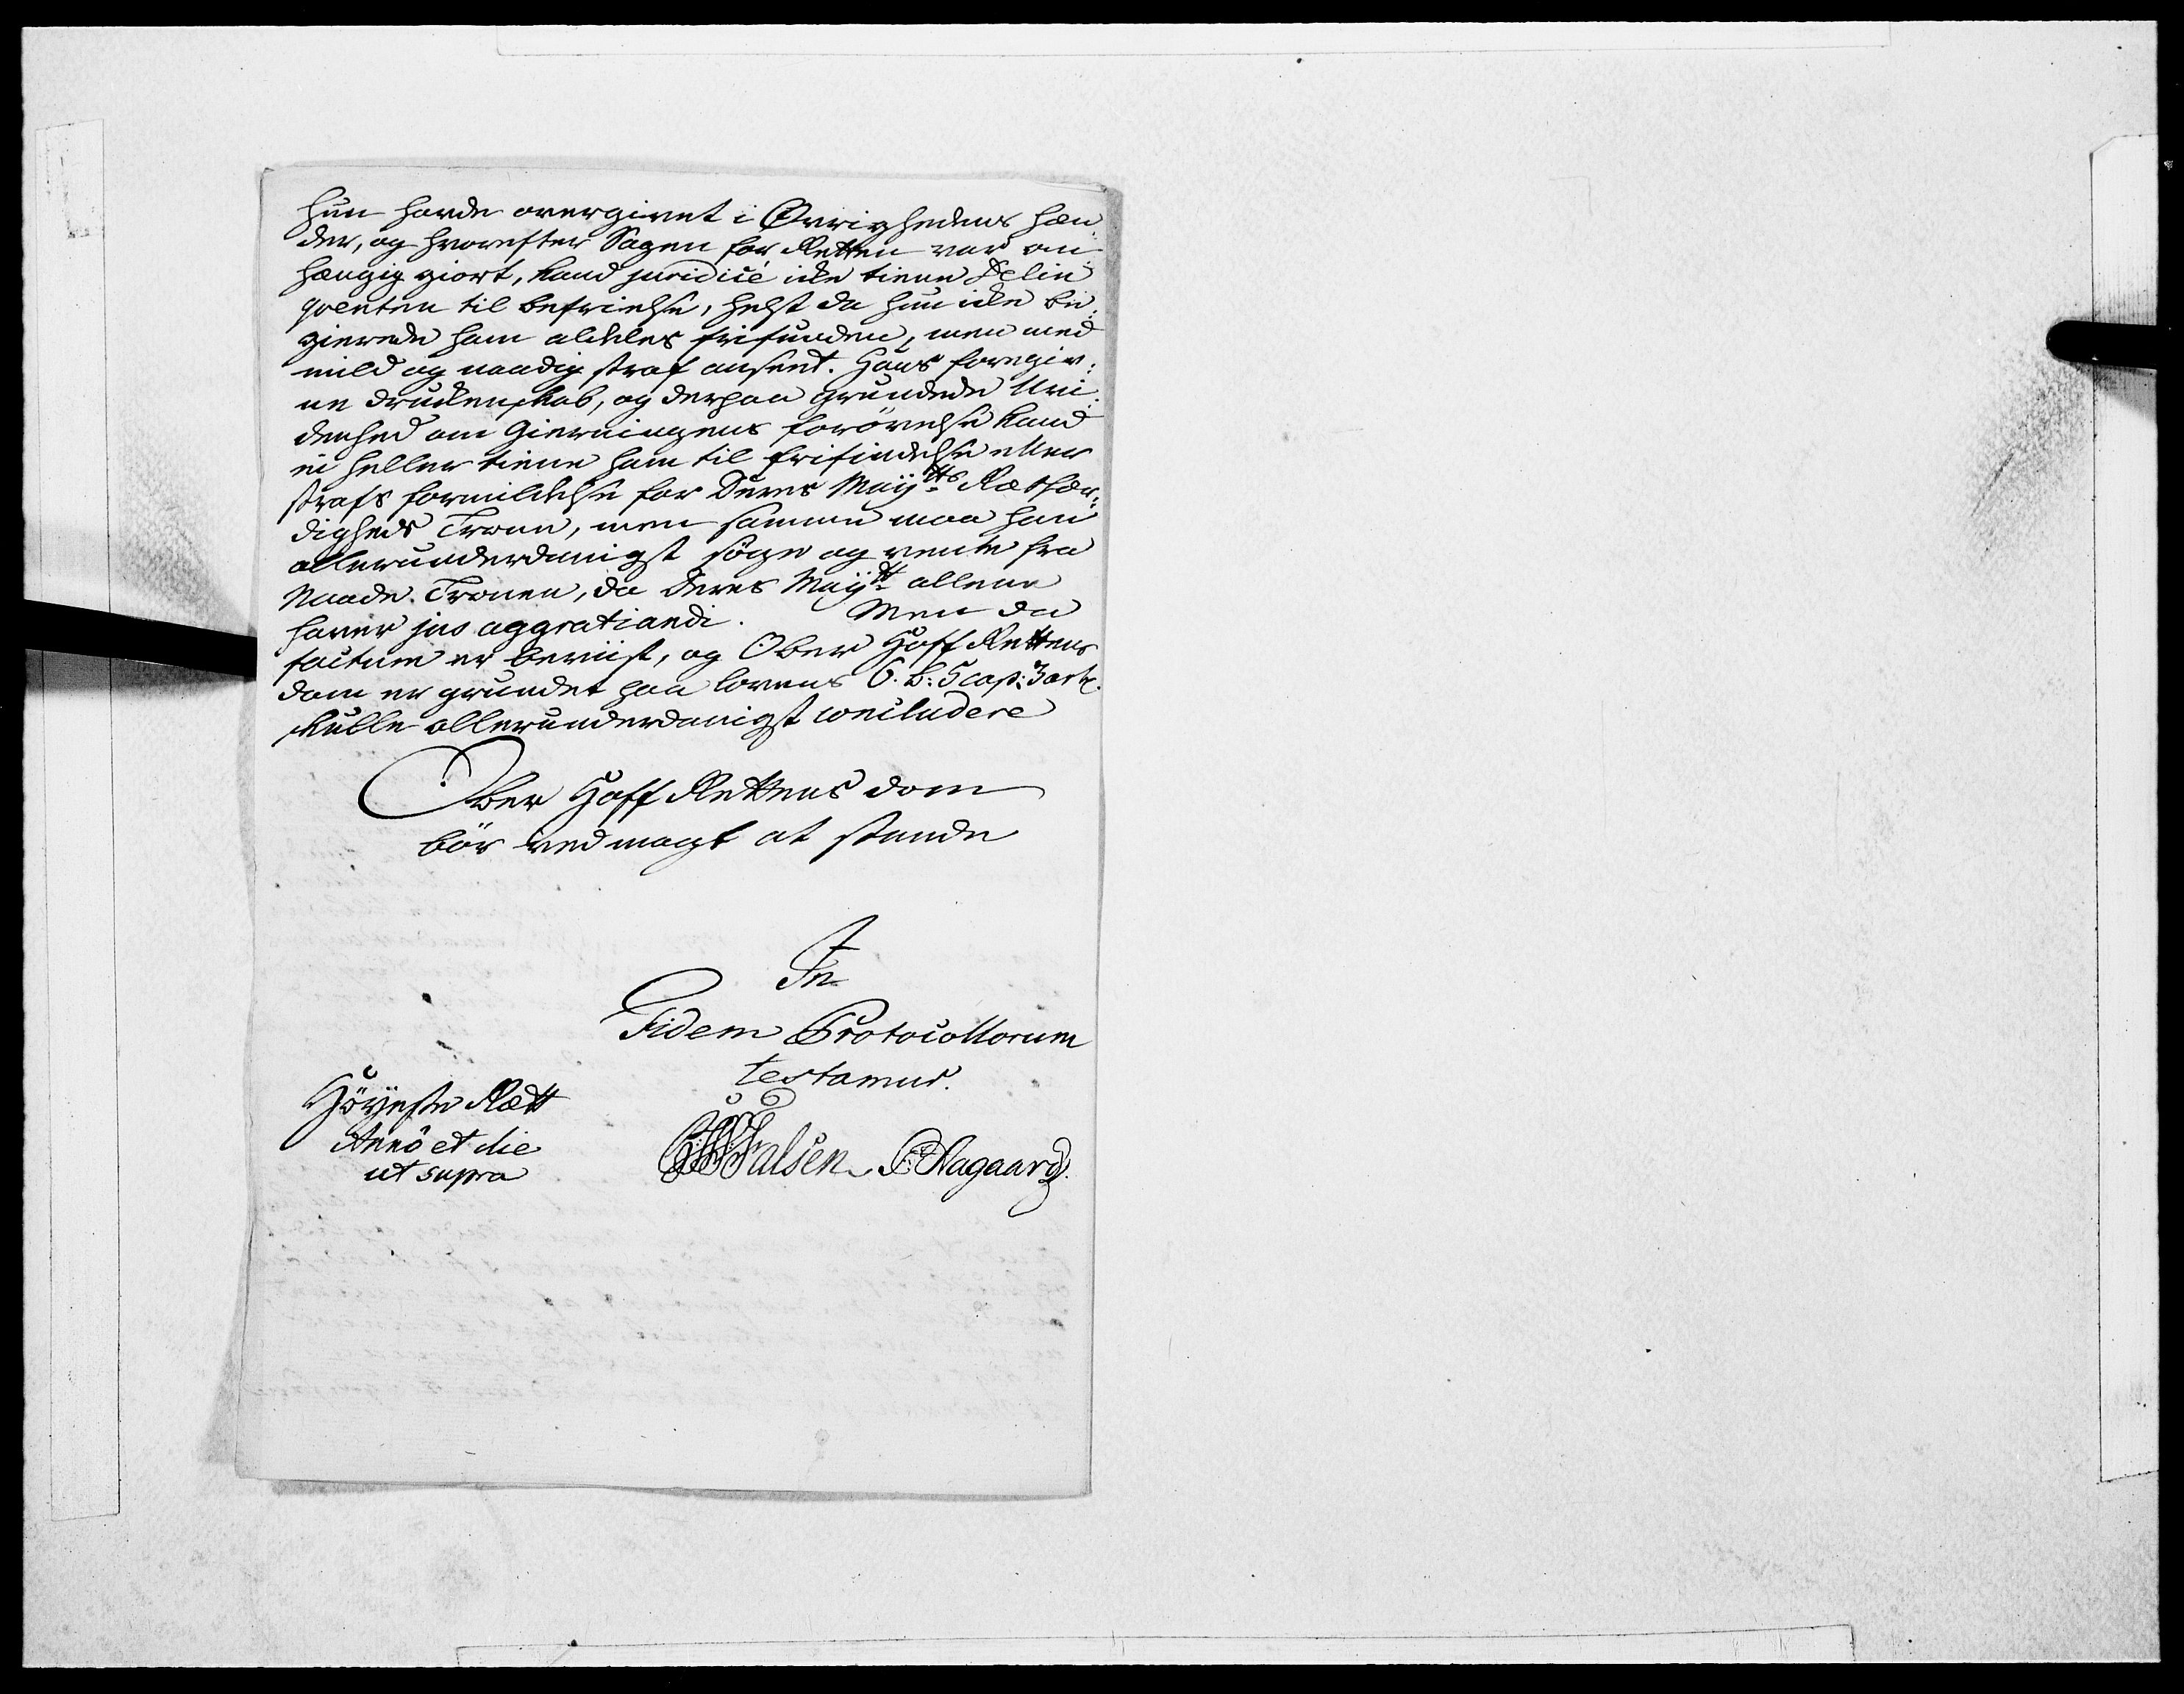 hun hafde overgivet i Øvrighedens hæn:
der, og hvorefter Sagen for Retten var an:
hængig giort, kand juridicé icke tiene Delin
qventen til befrielse, helst da hun icke be:
gierede ham aldeles frifunden, men med
mild og naadig straf anseet. Hans foregiv:
ne druckenskab, og derpaa grundede Uvi:
denhed om Gierningens forøvelse kand
ei heller tiene ham til frifindelse eller
strafs formildelse for Deres Mayts Rætfær:
digheds Trone, men samme maa han
allerunderdanigst søge og vente fra
Naade-Tronen, da Deres Mayt allene
haver jus aggratiandi. Men da
factum er beviist, og Ober Hoff Rettens
dom er grundet paa lovens 6. b: 5 cap: 3 art.
skulle allerunderdanigst concludere
Ober Hoff Rettens dom
bör ved magt at stande
In
Fidem Protocollorum
testamur.
Höyeste Rætt
Anno et die
ut supra
Falsen Aagaard.